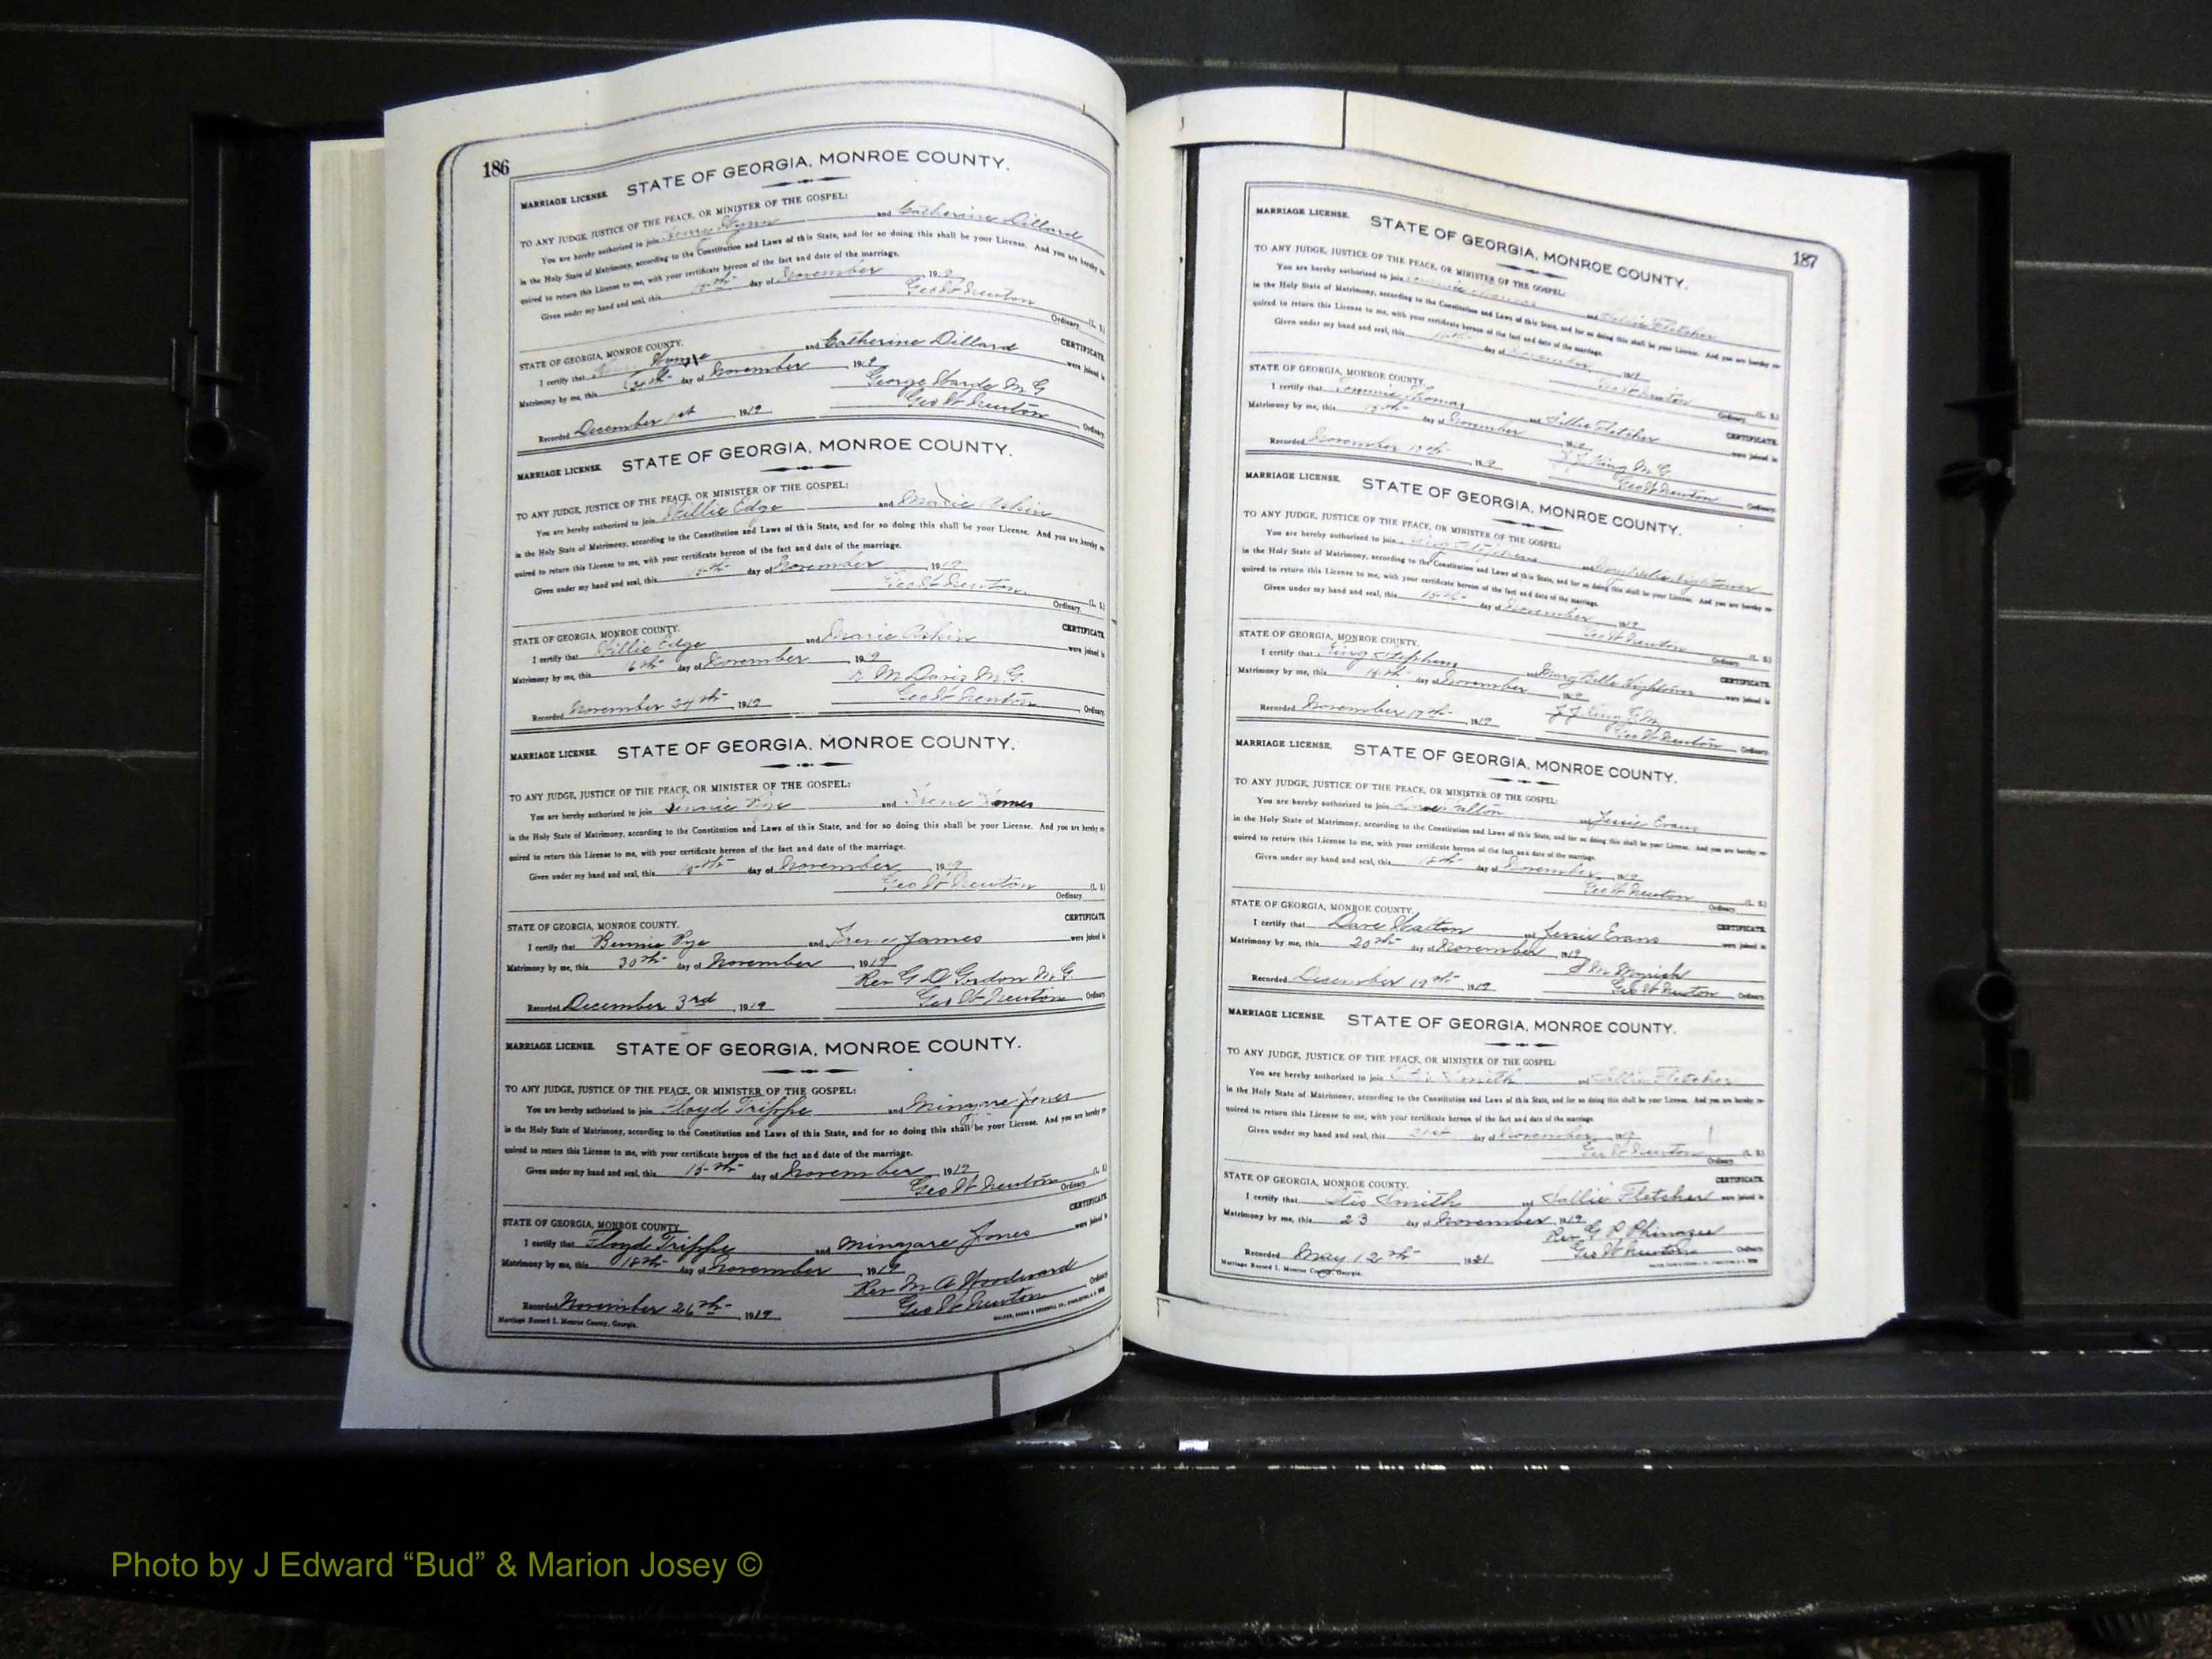 186
MARRIAGE LICENSE. STATE OF GEORGIA, MONROE COUNTY.
TO ANY JUDGE, JUSTICE OF THE PEACE, OR MINISTER OF THE GOSPEL:
You are hereby authorized to join and Catherine Dillard
in the Holy State of Matrimony, according to the Constitution and Laws of this State, and for so doing this shall be your License. And you are hereby re-
quired to return this License to me, with your certificate hereon of the fact and date of the marriage.
Given under my hand and seal, this 15th day of November 1919
Geo W Newton (L. S.)
Ordinary.
STATE OF GEORGIA, MONROE COUNTY. CERTIFICATE.
I certify that and Catherine Dillard were joined in
Matrimony by me, this day of November 1919
George Harde M G
Recorded December 1st 1919 Geo W Newton Ordinary.
MARRIAGE LICENSE. STATE OF GEORGIA, MONROE COUNTY.
TO ANY JUDGE, JUSTICE OF THE PEACE, OR MINISTER OF THE GOSPEL:
You are hereby authorized to join Willie Edge and Marie Askin
in the Holy State of Matrimony, according to the Constitution and Laws of this State, and for so doing this shall be your License. And you are hereby re-
quired to return this License to me, with your certificate hereon of the fact and date of the marriage.
Given under my hand and seal, this 15th day of November 1919
Geo W Newton (L. S.)
Ordinary.
STATE OF GEORGIA, MONROE COUNTY. CERTIFICATE.
I certify that Willie Edge and Marie Askin were joined in
Matrimony by me, this 16th day of November 1919
M Davis M.G.
Recorded November 24th 1919 Geo W Newton Ordinary.
MARRIAGE LICENSE. STATE OF GEORGIA, MONROE COUNTY.
TO ANY JUDGE, JUSTICE OF THE PEACE, OR MINISTER OF THE GOSPEL:
You are hereby authorized to join Bennie Pye and Irene James
in the Holy State of Matrimony, according to the Constitution and Laws of this State, and for so doing this shall be your License. And you are hereby re-
quired to return this License to me, with your certificate hereon of the fact and date of the marriage.
Given under my hand and seal, this 15th day of November 1919
Geo W Newton (L. S.)
Ordinary.
STATE OF GEORGIA, MONROE COUNTY. CERTIFICATE.
I certify that Bennie Pye and Irene James were joined in
Matrimony by me, this 30th day of November 1919
Rev G D Gordon M.G
Recorded December 3rd 1919 Geo W Newton Ordinary.
MARRIAGE LICENSE. STATE OF GEORGIA, MONROE COUNTY.
TO ANY JUDGE, JUSTICE OF THE PEACE, OR MINISTER OF THE GOSPEL:
You are hereby authorized to join Floyd Trippe and Mingare Jones
in the Holy State of Matrimony, according to the Constitution and Laws of this State, and for so doing this shall be your License. And you are hereby re-
quired to return this License to me, with your certificate hereon of the fact and date of the marriage.
Given under my hand and seal, this 15th day of November 1919
Geo W Newton (L. S.)
Ordinary
STATE OF GEORGIA, MONROE COUNTY. CERTIFICATE
I certify that Floyd Trippe and Mingare Jones were joined in
Matrimony by me, this 18th day of November 1919
Rev M A Woodward
Recorded November 26th 1919 Geo W Newton Ordinary
Marriage Record I. Monroe County, Georgia.
187
MARRIAGE LICENSE. STATE OF GEORGIA, MONROE COUNTY.
TO ANY JUDGE, JUSTICE OF THE PEACE, OR MINISTER OF THE GOSPEL:
You are hereby authorized to join Thomas and Fletcher
in the Holy State of Matrimony, according to the Constitution and Laws of this State, and for so doing this shall be your License. And you are hereby re-
quired to return this License to me, with your certificate hereon of the fact and date of the marriage.
Given under my hand and seal, this day of November 1919
Geo W Newton (L. S.)
Ordinary.
STATE OF GEORGIA, MONROE COUNTY. CERTIFICATE.
I certify that Thomas and Lillie Fletcher were joined in
Matrimony by me, this day of November 1919
J J King M G
Recorded November 17th 1919 Geo W Newton Ordinary.
MARRIAGE LICENSE. STATE OF GEORGIA, MONROE COUNTY.
TO ANY JUDGE, JUSTICE OF THE PEACE, OR MINISTER OF THE GOSPEL:
You are hereby authorized to join King Stephens and Mary Belle Hightower
in the Holy State of Matrimony, according to the Constitution and Laws of this State, and for so doing this shall be your License. And you are hereby re-
quired to return this License to me, with your certificate hereon of the fact and date of the marriage.
Given under my hand and seal, this 15th day of November 1919
Geo W Newton (L. S.)
Ordinary.
STATE OF GEORGIA, MONROE COUNTY. CERTIFICATE.
I certify that King Stephens and Mary Belle Hightower were joined in
Matrimony by me, this 16th day of November 1919
J J King
Recorded November 17th 1919 Geo W Newton Ordinary.
MARRIAGE LICENSE. STATE OF GEORGIA, MONROE COUNTY.
TO ANY JUDGE, JUSTICE OF THE PEACE, OR MINISTER OF THE GOSPEL:
You are hereby authorized to join Dave Walton and Jessie Evans
in the Holy State of Matrimony, according to the Constitution and Laws of this State, and for so doing this shall be your License. And you are hereby re-
quired to return this License to me, with your certificate hereon of the fact and date of the marriage.
Given under my hand and seal, this 18th day of November 1919
Geo W Newton (L. S.)
Ordinary.
STATE OF GEORGIA, MONROE COUNTY. CERTIFICATE.
I certify that Dave Walton and Jessie Evans were joined in
Matrimony by me, this 20th day of November 1919
Recorded December 19th 1919 Geo W Newton Ordinary.
MARRIAGE LICENSE. STATE OF GEORGIA, MONROE COUNTY.
TO ANY JUDGE, JUSTICE OF THE PEACE, OR MINISTER OF THE GOSPEL:
You are hereby authorized to join Otis Smith and Sallie Fletcher
in the Holy State of Matrimony, according to the Constitution and Laws of this State, and for so doing this shall be your License. And you are hereby re-
quired to return this License to me, with your certificate hereon of the fact and date of the marriage.
Given under my hand and seal, this 21st day of November 1919
Geo W Newton (L. S.)
Ordinary.
STATE OF GEORGIA, MONROE COUNTY. CERTIFICATE.
I certify that Otis Smith and Sallie Fletcher were joined in
Matrimony by me, this 23 day of November 1919
Rev G P Phinazee
Recorded May 12th 1921 Geo W Newton Ordinary.
Marriage Record I. Monroe County, Georgia.
Photo by J Edward “Bud” & Marion Josey ©